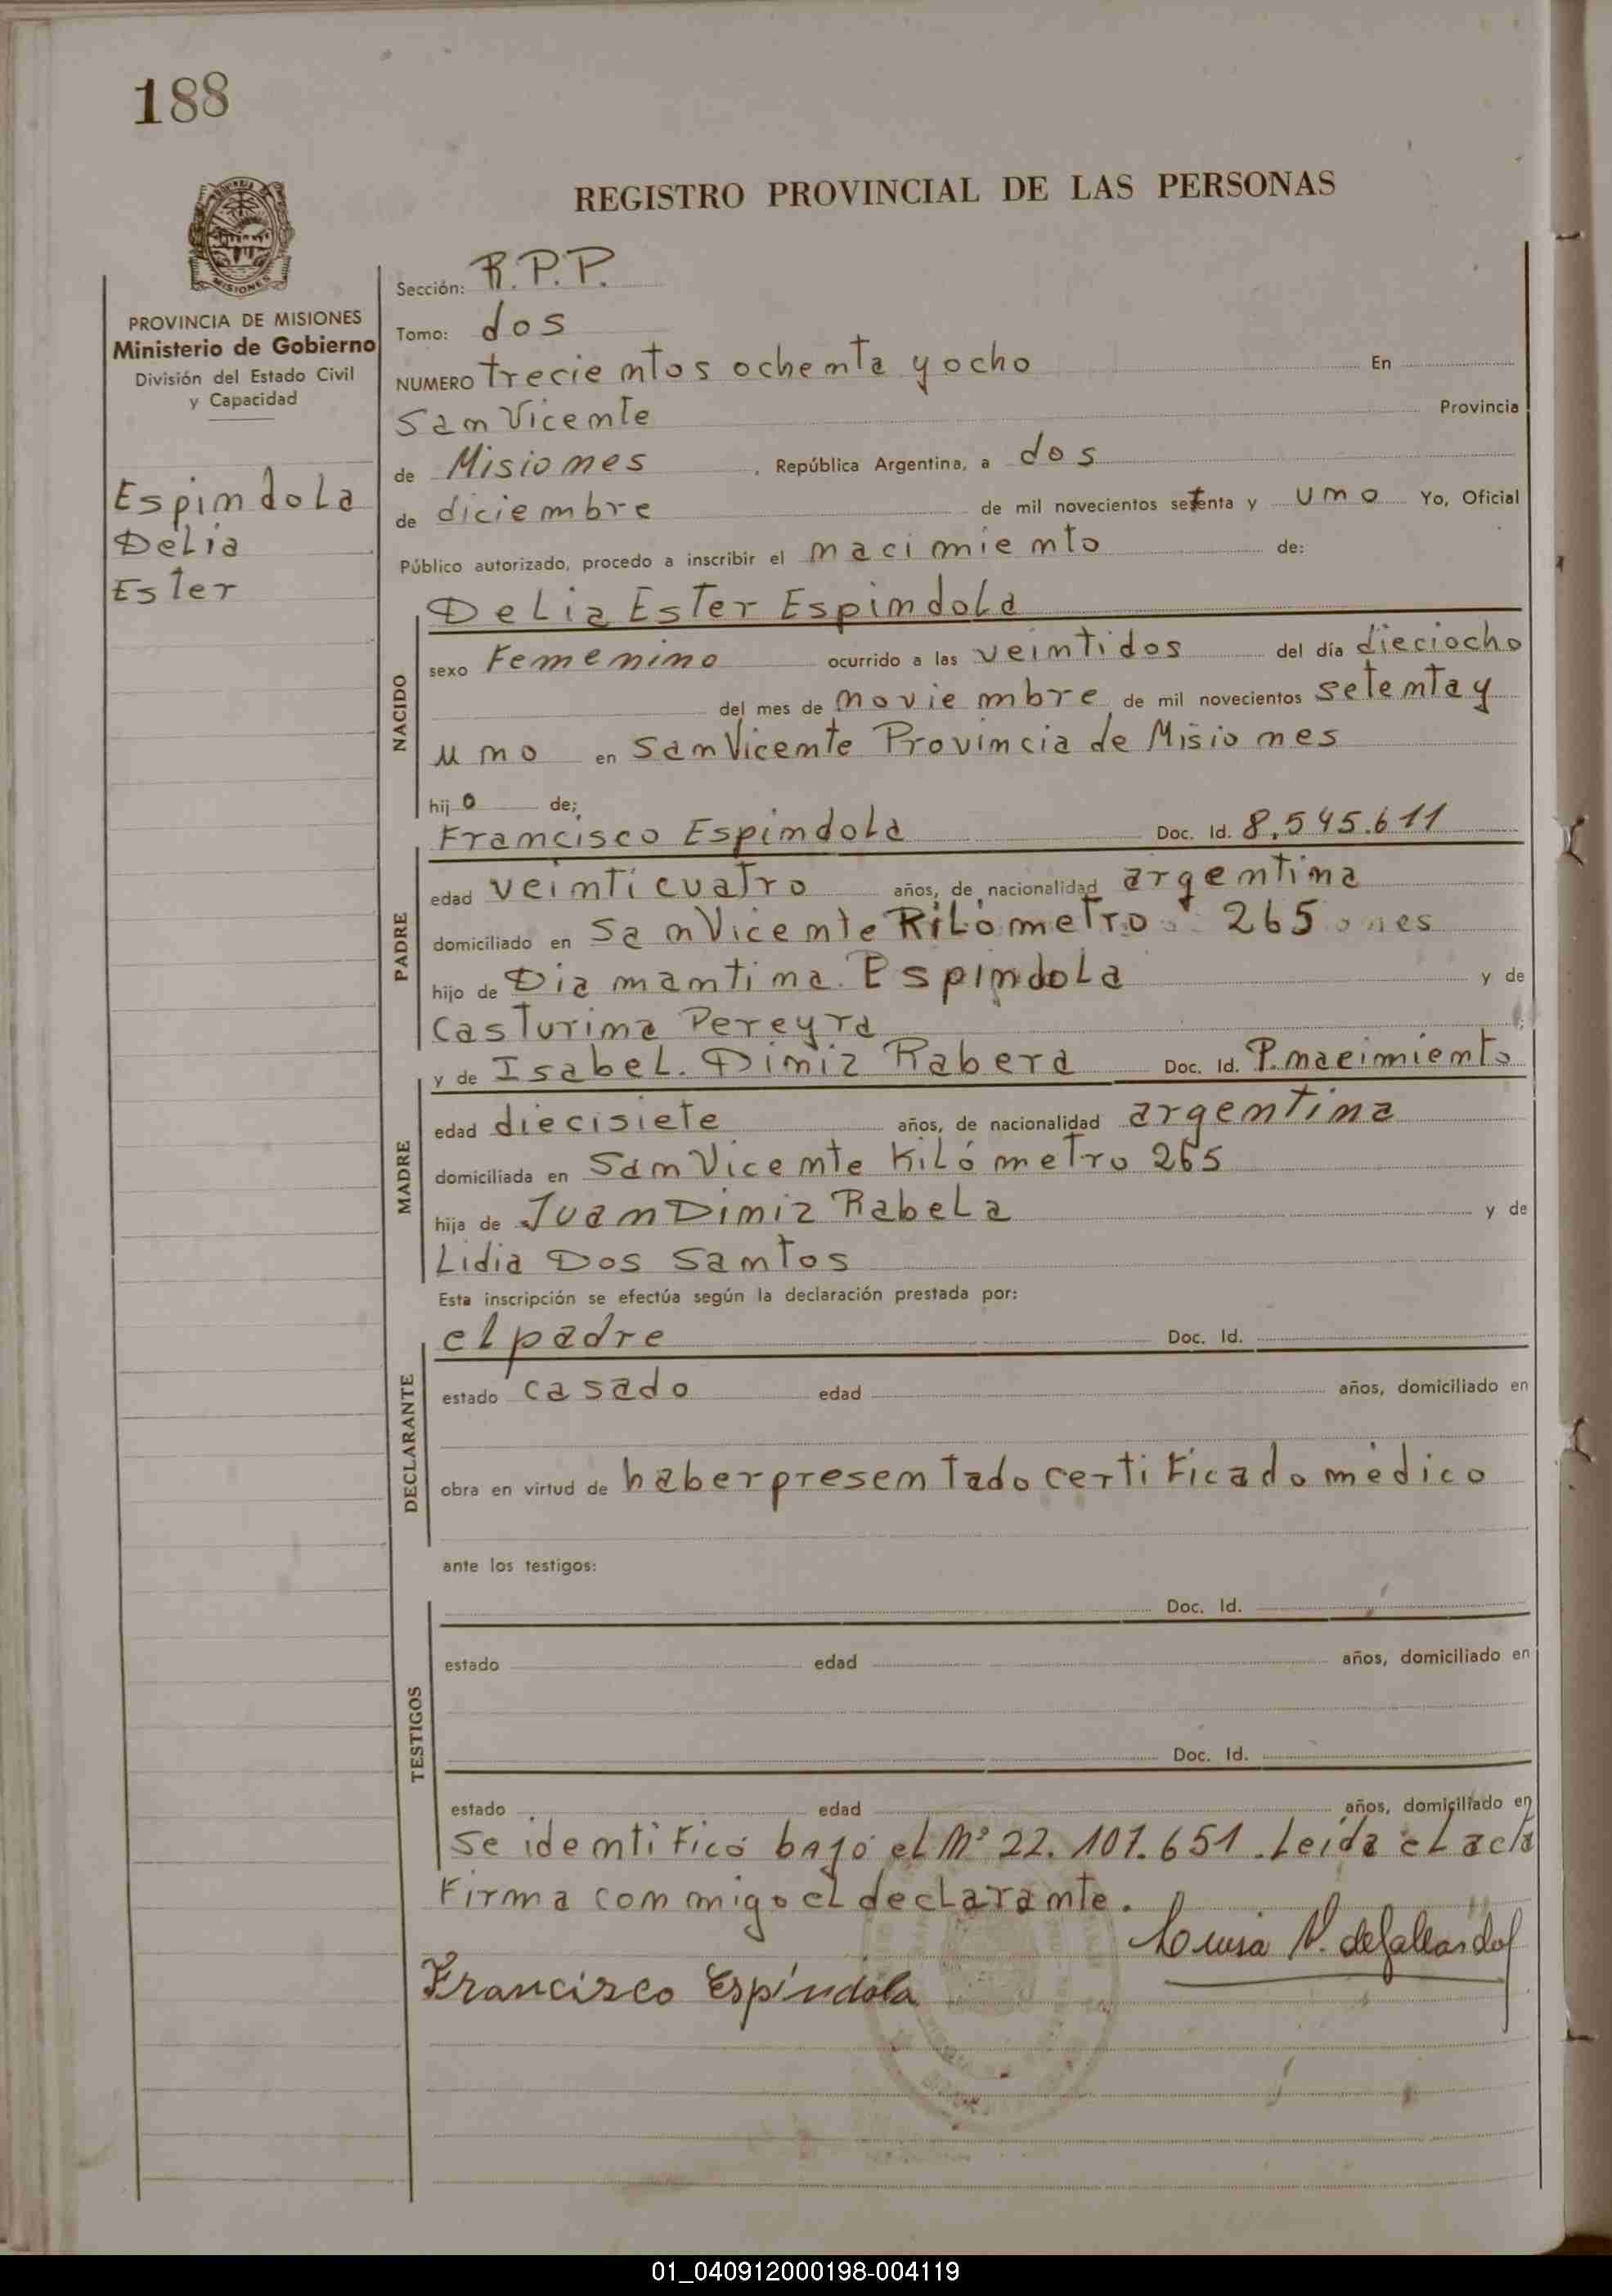 188
REGISTRO PROVINCIAL DE LAS PERSONAS
MISIONES
PROVINCIA DE MISIONES
Ministerio de Gobierno
División del Estado Civil
y Capacidad
Espindola
Delia
Ester
Sección: R.P.P.
Tomo: dos
NUMERO trecientos ochenta y ocho En
San Vicente Provincia
de Misiones , República Argentina, a dos
de diciembre de mil novecientos setenta y uno Yo, Oficial
Público autorizado, procedo a inscribir el nacimiento de:
NACIDO
Delia Ester Espindola
sexo Femenino ocurrido a las veintidos del día dieciocho
del mes de noviembre de mil novecientos setenta y
uno en San Vicente Provincia de Misiones
hijo de:
PADRE
Francisco Espindola Doc. Id. 8.545.611
edad veinticuatro años, de nacionalidad argentina
domiciliado en San Vicente Kilómetro 265
hijo de Diamantina Espindola y de
Casturina Pereyra
MADRE
y de Isabel. Diniz Rabera Doc. Id. P. nacimiento
edad diecisiete años, de nacionalidad argentina
domiciliada en San Vicente Kilómetro 265
hija de Juan Diniz Rabela y de
Lidia Dos Santos
Esta inscripción se efectúa según la declaración prestada por:
DECLARANTE
el padre Doc. Id.
estado casado edad años, domiciliado en
obra en virtud de haber presentado certificado médico
ante los testigos:
TESTIGOS
Doc. Id.
estado edad años, domiciliado en
Doc. Id.
estado edad años, domiciliado en
Se identificó bajo el Nº 22.101.651. Leída el acta
Firma conmigo el declarante.
Luisa de Gallardo
Francisco Espíndola
01_040912000198-004119